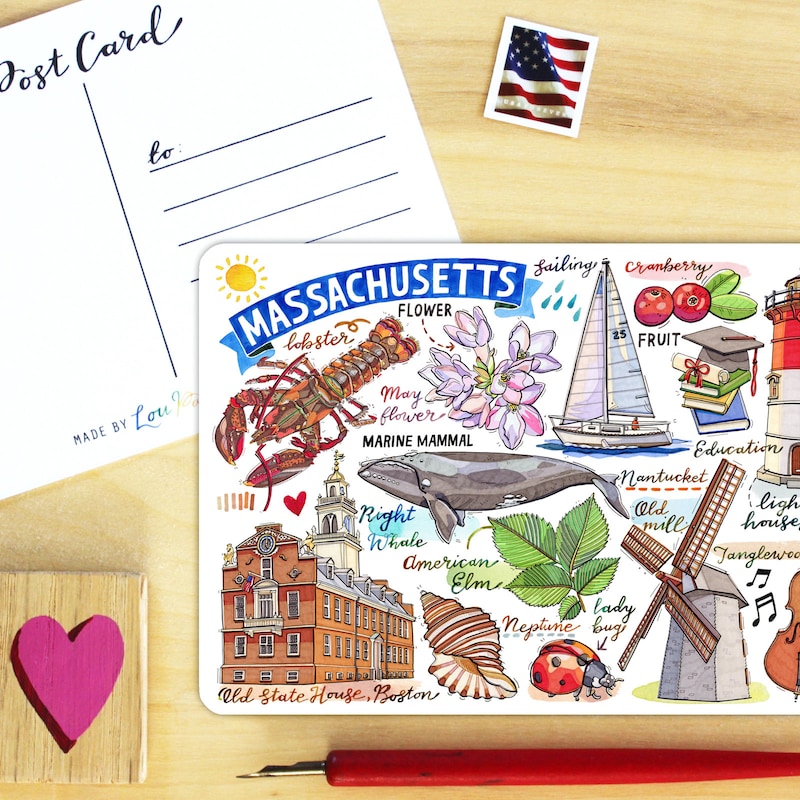 Post Card
to:
MADE BY Lou
MASSACHUSETTS
lobster
FLOWER
May
flower
sailing
25
cranberry
FRUIT
Education
MARINE MAMMAL
Right
Whale
Nantucket
Old
mill
light
house
American
Elm
Tanglewood
Neptune
lady
bug
Old State House, Boston